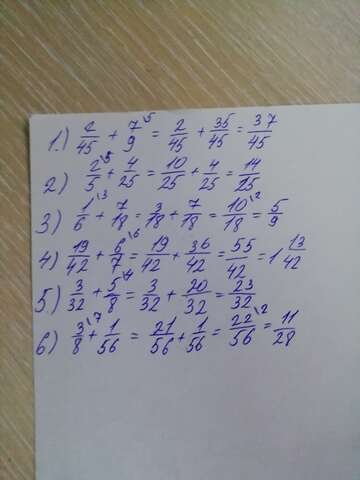 1.) 2/45 + 7\5/9 = 2/45 + 35/45 = 37/45
2) 2\5/5 + 4/25 = 10/25 + 4/25 = 14/25
3) 1\3/6 + 7/18 = 3/18 + 7/18 = 10\2/18 = 5/9
4) 19/42 + 6\6/7 = 19/42 + 36/42 = 55/42 = 1 13/42
5.) 3/32 + 5\4/8 = 3/32 + 20/32 = 23/32
6) 3\7/8 + 1/56 = 21/56 + 1/56 = 22\2/56 = 11/28